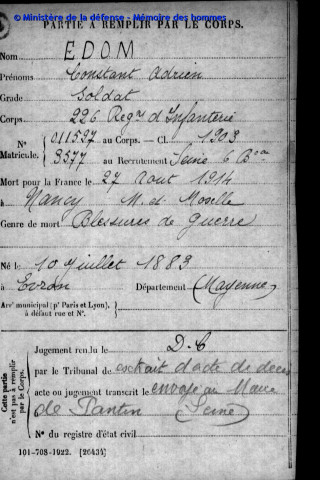 © Ministère de la défense - Mémoire des hommes
PARTIE À REMPLIR PAR LE CORPS.
Nom EDOM
Prénoms Constant Adrien
Grade Soldat
Corps 226 Regt d'Infanterie
N° 011527 au Corps. — Cl. 1903
Matricule. 3577 au Recrutement Seine 6 Bau
Mort pour la France le 27 Aout 1914
à Nancy M. et Moselle
Genre de mort Blessures de guerre
Né le 10 Juillet 1883
à Evron Département (Mayenne)
Arr' municipal (p' Paris et Lyon),
à défaut rue et N°.
Cette partie n'est pas à remplir par le Corps.
Jugement rendu le D.C
par le Tribunal de extrait d'acte de décès
acte ou jugement transcrit le envoyé au Maire
de Pantin (Seine)
N° du registre d'état civil
101-708-1922. [26434]